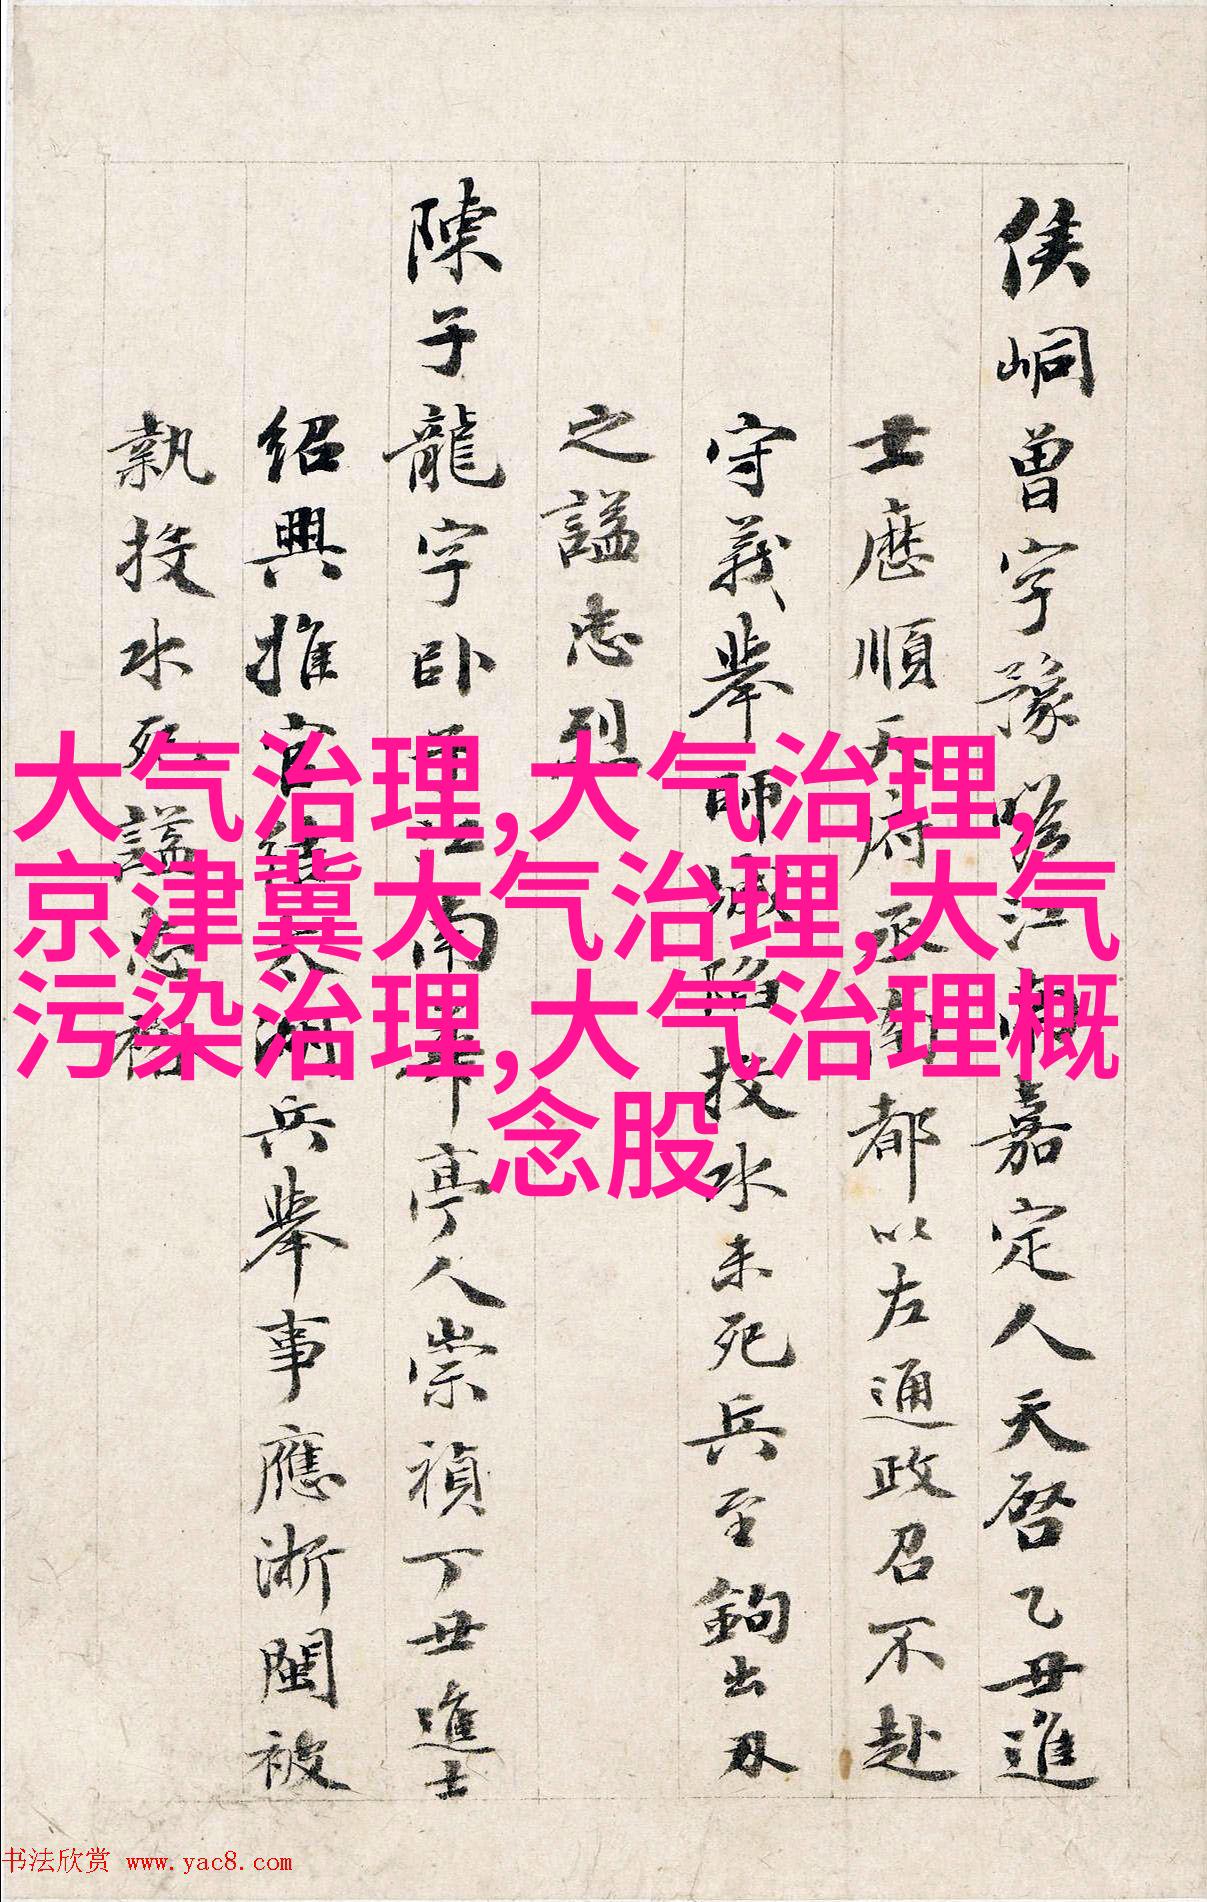 侯峒曾字豫瞻江南嘉定人天啓乙丑進
士歷順天府丞南都以左通政召不赴
守義舉師城陷投水未死兵至鉤出刃
之謚忠烈
陳子龍字臥子江南華亭人崇禎丁丑進士
紹興推官結太湖兵舉事應浙閩被
執投水死謚忠裕
大气治理,大气治理,
京津冀大气治理,大气
污染治理,大气治理概
念股
书法欣赏 www.yac8.com